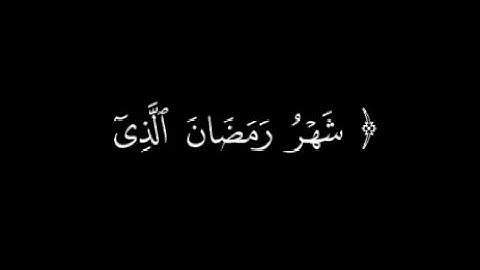 ﴿ شَهْرُ رَمَضَانَ ٱلَّذِىٓ